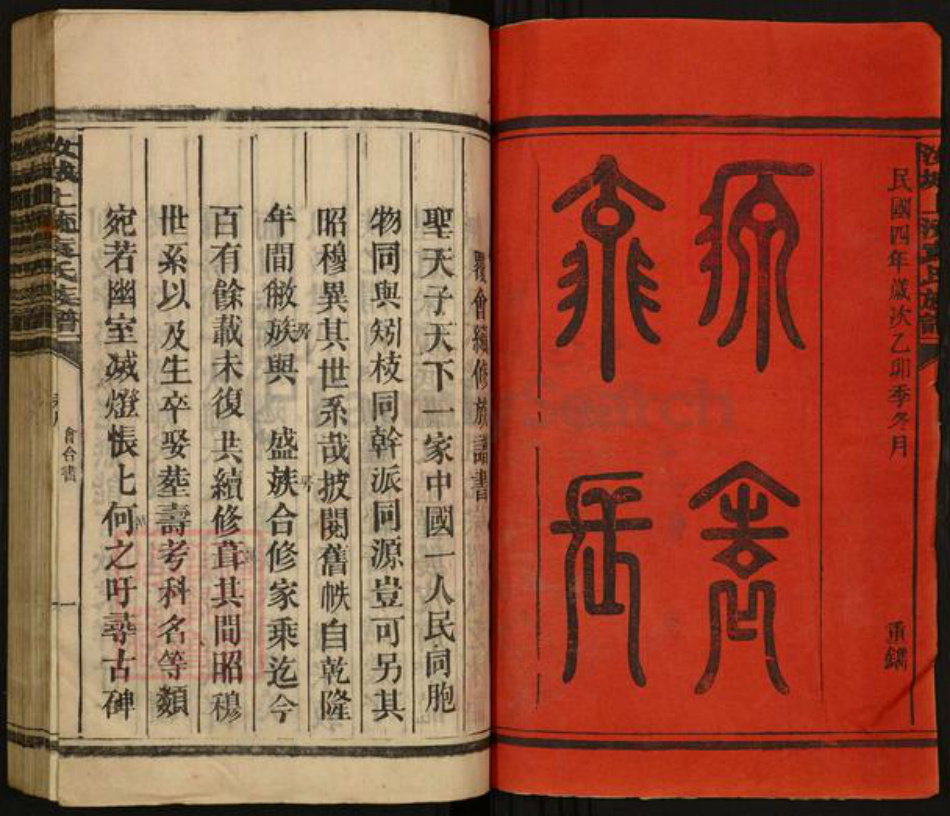 民國四年歲次乙卯季冬月
重鐫
源
遠
流
長
會續修族譜書
聖天子天下一家中國一人民同胞
物同與矧枝同幹派同源豈可另其
昭穆異其世系哉披閱舊帙自乾隆
年間敝族與 盛族合修家乘迄今
百有餘載未復共續修葺其間昭穆
世系以及生卒娶塟壽考科名等類
宛若幽室滅燈悵上何之吁尋古碑
會合書
一
氏族譜